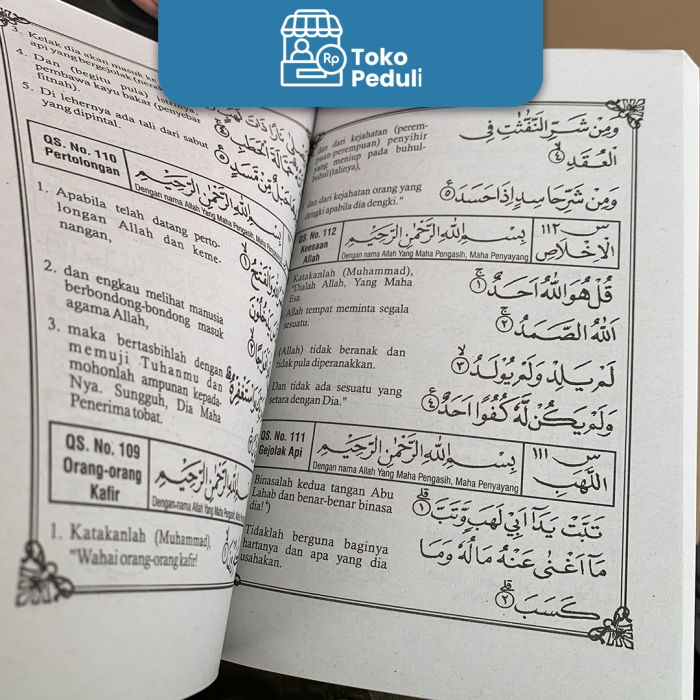 Toko
Peduli
dan dari kejahatan (perem-
puan-perempuan) penyihir
yang meniup pada buhul-
buhul (talinya),
وَمِنْ شَرِّ النَّفّٰثٰتِ فِى
الْعُقَدِ ۙ ٤
dan dari kejahatan orang yang
dengki apabila dia dengki."
وَمِنْ شَرِّ حَاسِدٍ اِذَا حَسَدَ ۚ ٥
QS. No. 112
Keesaan
Allah
بِسْمِ اللّٰهِ الرَّحْمٰنِ الرَّحِيْمِ
Dengan nama Allah Yang Maha Pengasih, Maha Penyayang
س ١١٢
الْاِخْلَاصِ
Katakanlah (Muhammad),
"Dialah Allah, Yang Maha
Esa.
قُلْ هُوَ اللّٰهُ اَحَدٌ ۚ ١
Allah tempat meminta segala
sesuatu.
اَللّٰهُ الصَّمَدُ ۚ ٢
(Allah) tidak beranak dan
tidak pula diperanakkan.
لَمْ يَلِدْ وَلَمْ يُوْلَدْ ۙ ٣
Dan tidak ada sesuatu yang
setara dengan Dia."
وَلَمْ يَكُنْ لَّهٗ كُفُوًا اَحَدٌ ࣖ ٤
QS. No. 111
Gejolak Api
بِسْمِ اللّٰهِ الرَّحْمٰنِ الرَّحِيْمِ
Dengan nama Allah Yang Maha Pengasih, Maha Penyayang
س ١١١
اللَّهَبِ
Binasalah kedua tangan Abu
Lahab dan benar-benar binasa
dia!*)
تَبَّتْ يَدَآ اَبِيْ لَهَبٍ وَّتَبَّ ۗ ١
Tidaklah berguna baginya
hartanya dan apa yang dia
usahakan.
مَآ اَغْنٰى عَنْهُ مَالُهٗ وَمَا
كَسَبَ ۗ ٢
3. Kelak dia akan masuk ke
api yang bergejolak
4. Dan (begitu pula) istrinya,
pembawa kayu bakar (penyebar
fitnah).
5. Di lehernya ada tali dari sabut
yang dipintal.
QS. No. 110
Pertolongan
بِسْمِ اللّٰهِ الرَّحْمٰنِ الرَّحِيْمِ
Dengan nama Allah Yang Maha Pengasih, Maha
1. Apabila telah datang perto-
longan Allah dan keme-
nangan,
2. dan engkau melihat manusia
berbondong-bondong masuk
agama Allah,
3. maka bertasbihlah dengan
memuji Tuhanmu dan
mohonlah ampunan kepada-
Nya. Sungguh, Dia Maha
Penerima tobat.
QS. No. 109
Orang-orang
Kafir
بِسْمِ اللّٰهِ الرَّحْمٰنِ الرَّحِيْمِ
Dengan nama Allah Yang Maha Pengasih,
1. Katakanlah (Muhammad),
"Wahai orang-orang kafir!